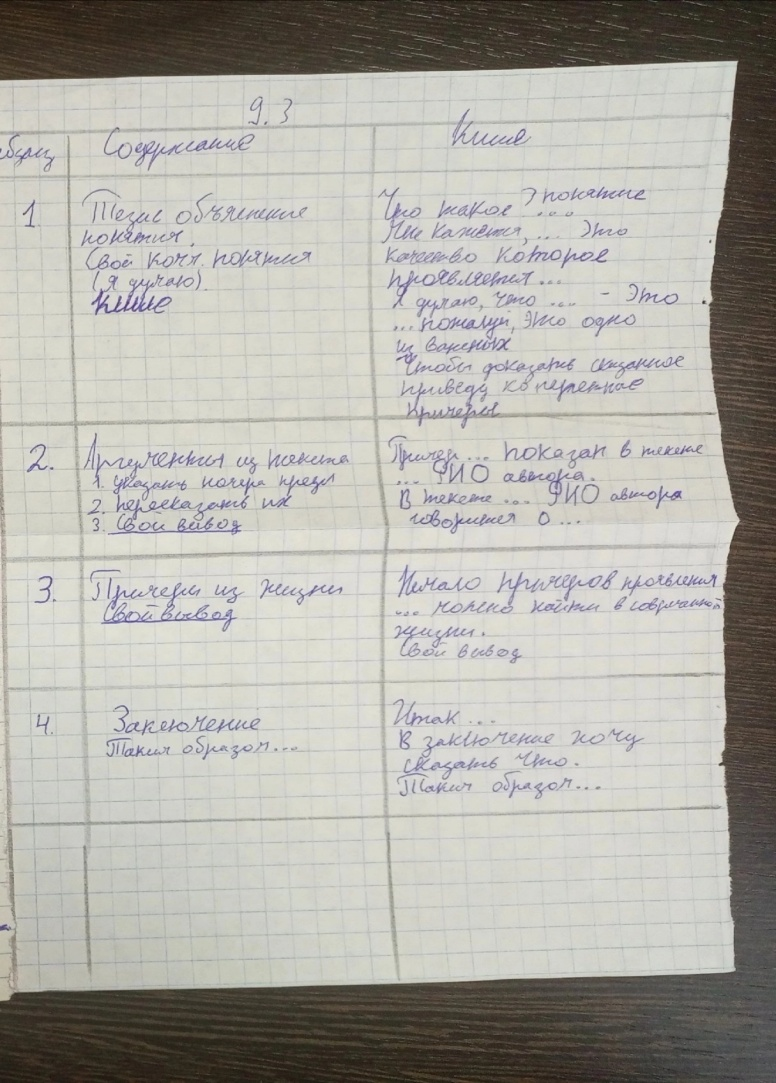 9.3
Содержание
Клише
1
Тезис объяснение
понятия.
Свой комм. понятия
(я думаю).
Клише
Что такое понятие
...?
Мне кажется, ... это
качество которое
проявляется...
Я думаю, что ... - это
... пожалуй, это одно
из важных
Чтобы доказать сказанное
приведу конкретные
примеры
2.
Аргументы из текста
1. указать номера предл
2. пересказать их
3. Свой вывод
Пример ... показан в тексте
... ФИО автора.
В тексте ... ФИО автора
говорится о ...
3.
Примеры из жизни
Свой вывод
Немало примеров проявления
... можно найти в современной
жизни.
Свой вывод
4.
Заключение
Таким образом...
Итак ...
В заключение хочу
сказать что.
Таким образом...